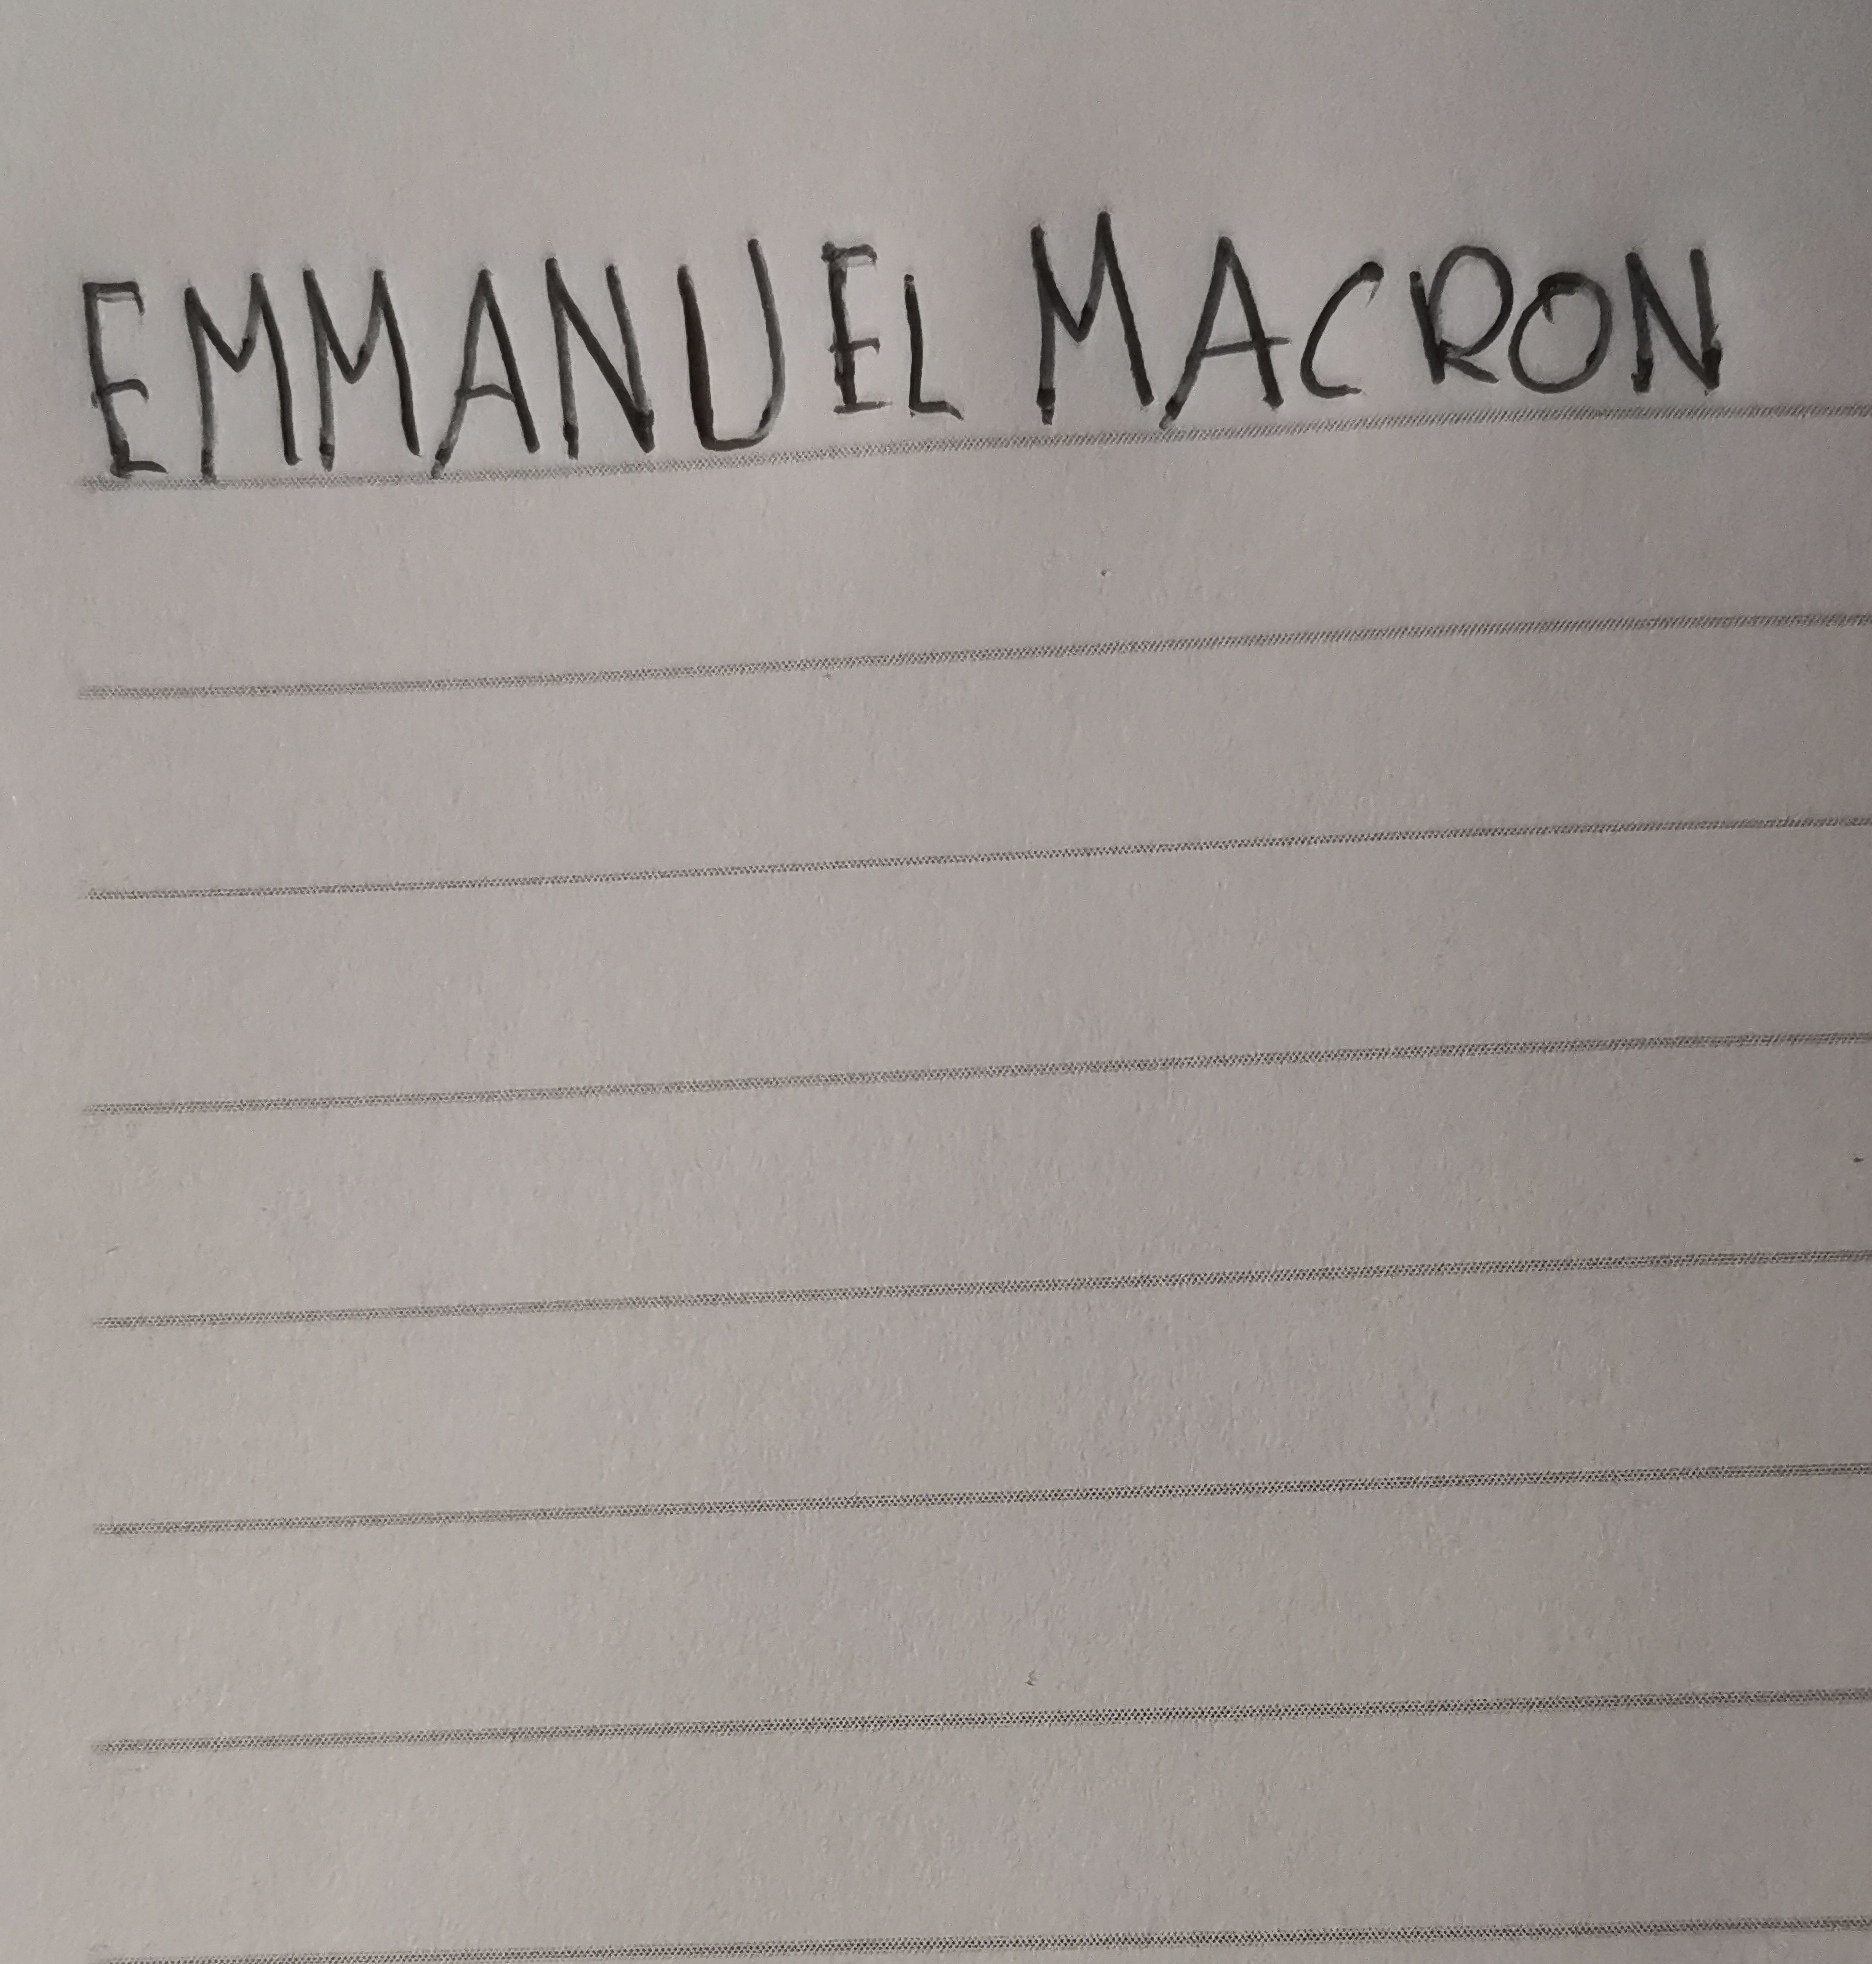 EMMANUEL MACRON